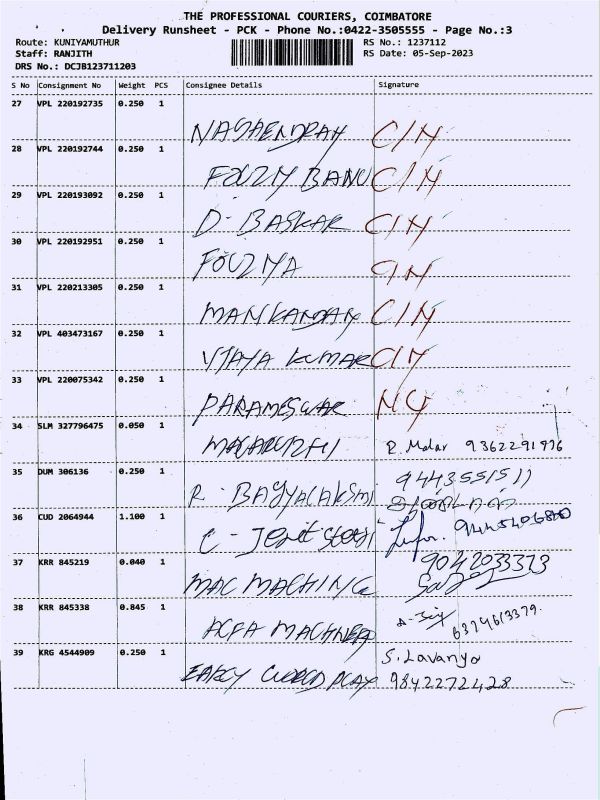 THE PROFESSIONAL COURIERS, COIMBATORE
Delivery Runsheet - PCK - Phone No.:0422-3505555 - Page No.:3
Route: KUNIYAMUTHUR RS No.: 1237112
Staff: RANJITH RS Date: 05-Sep-2023
DRS No.: DCJB123711203
S No Consignment No Weight PCS Consignee Details Signature
27 VPL 220192735 0.250 1
NAGAENDRAN C/N
28 VPL 220192744 0.250 1
FOUZIY BANU C/N
29 VPL 220193092 0.250 1
D. BASKAR C/N
30 VPL 220192951 0.250 1
FOUZIYA
31 VPL 220213305 0.250 1
MANIKANDAN C/N
32 VPL 403473167 0.250 1
VIJAYA KUMAR C/N
33 VPL 220075342 0.250 1
PARAMESWAR
34 SLM 327796475 0.050 1
R. Malar 9362291976
35 DUM 306136 0.250 1
9443551511
R. BAGYALAKSMI
36 CUD 2064944 1.100 1
C -
37 KRR 845219 0.040 1
9042033373
MAC MACHINE
38 KRR 845338 0.845 1
MACHINER 6374613379.
39 KRG 4544909 0.250 1
S. Lavanya
EARLY WORLD PLAY 9842272428